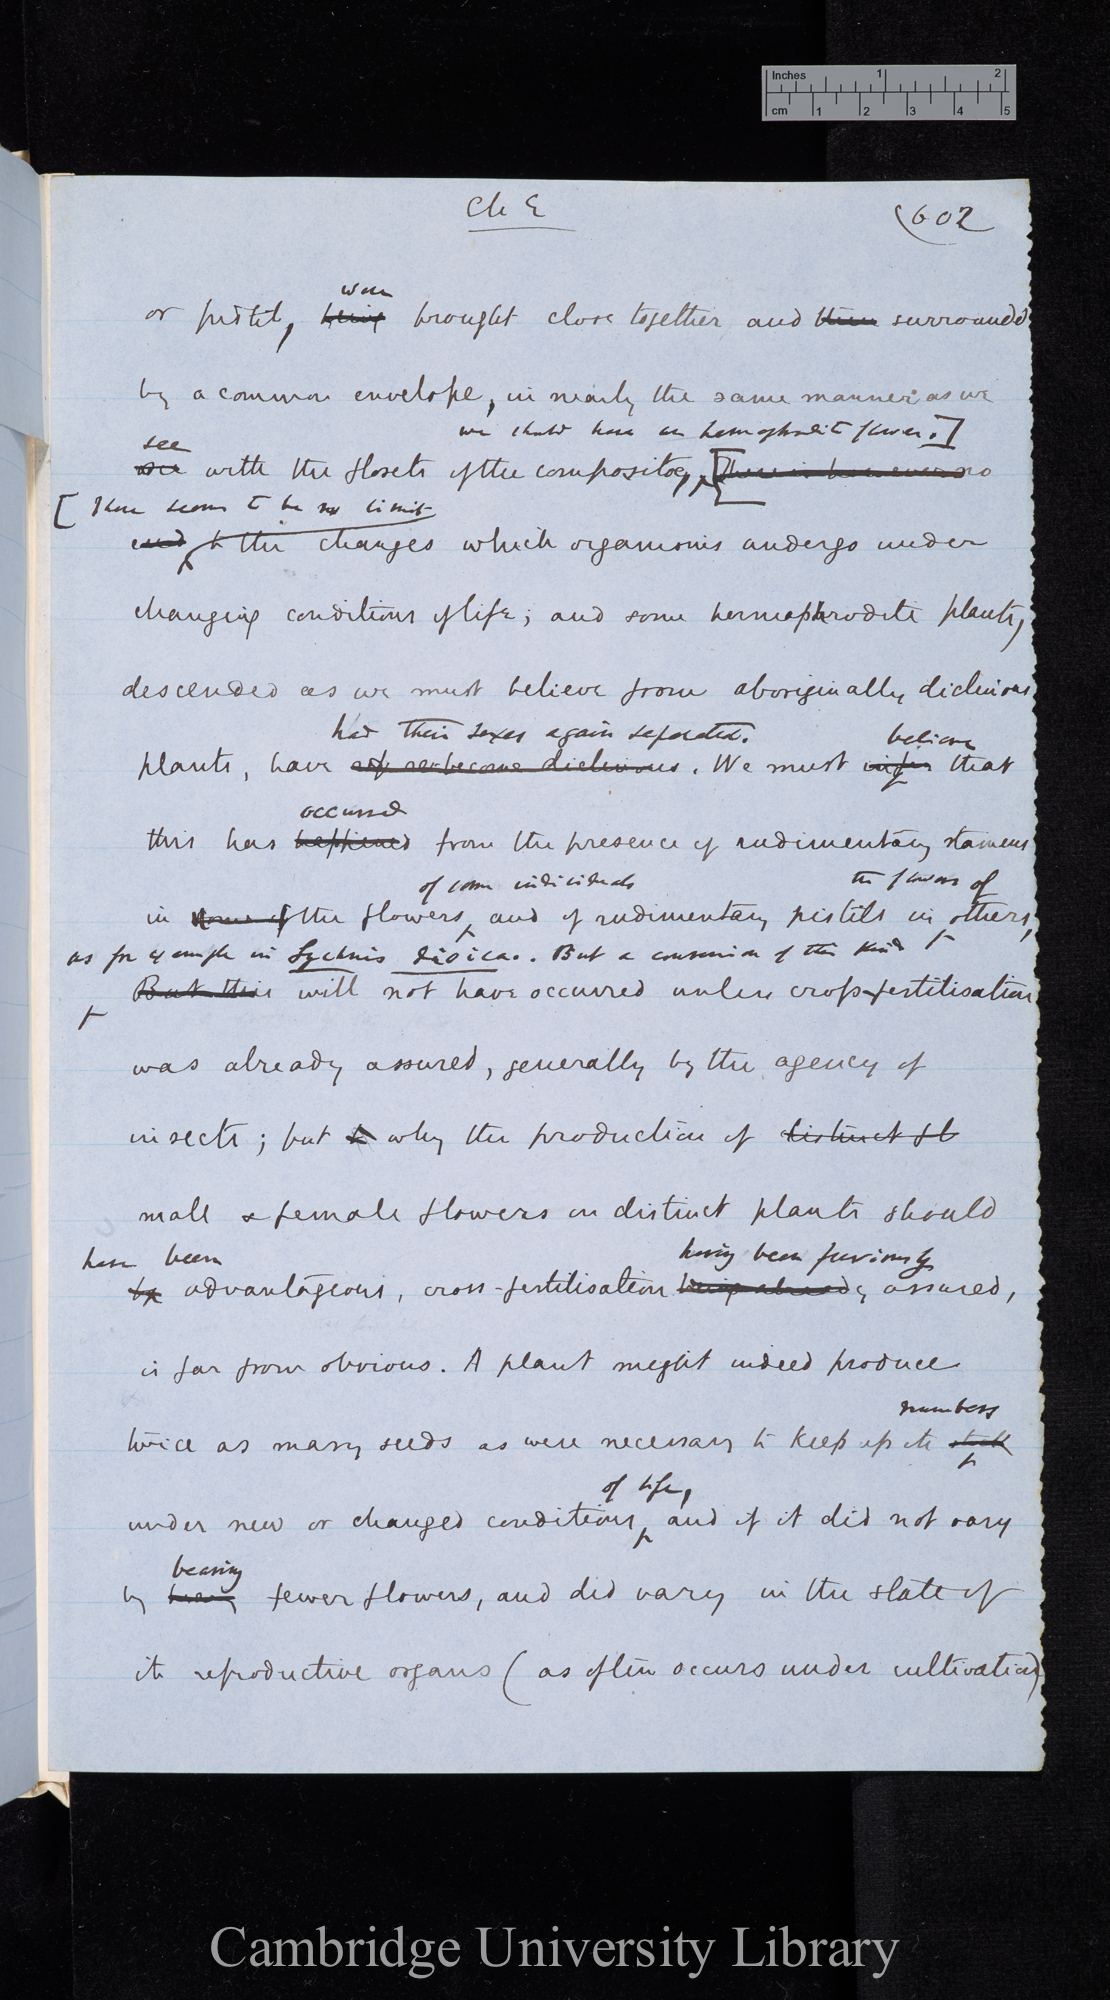 Inches 1 2
cm 1 2 3 4 5
Ch E
(602
were
or pistil, being brought close together and then surrounded
by a common envelope, in nearly the same manner as we
see we should have an hermaphrodite flower.]
see with the florets of the compositæ, [There is however no
[There seems to be no limit
end to the changes which organisms undergo under
changing conditions of life; and some hermaphrodite plants,
descended as we must believe from aboriginally diclinous
had their sexes again separated. believe
plants, have become diclinous. We must infer that
occurred
this has happened from the presence of rudimentary stamens
of some individuals the flowers of
in some of the flowers, and of rudimentary pistils in others,
as for example in Lychnis dioica. But a conversion of this kind
But this will not have occurred unless cross-fertilisation
was already assured, generally by the agency of
insects; but why the production of distinct fl
male & female flowers on distinct plants should
have been having been previously
be advantageous, cross-fertilisation being already assured,
is far from obvious. A plant might indeed produce
numbers
twice as many seeds as were necessary to keep up its stock
of life,
under new or changed conditions, and if it did not vary
bearing
by fewer flowers, and did vary in the state of
its reproductive organs (as often occurs under cultivation)
Cambridge University Library